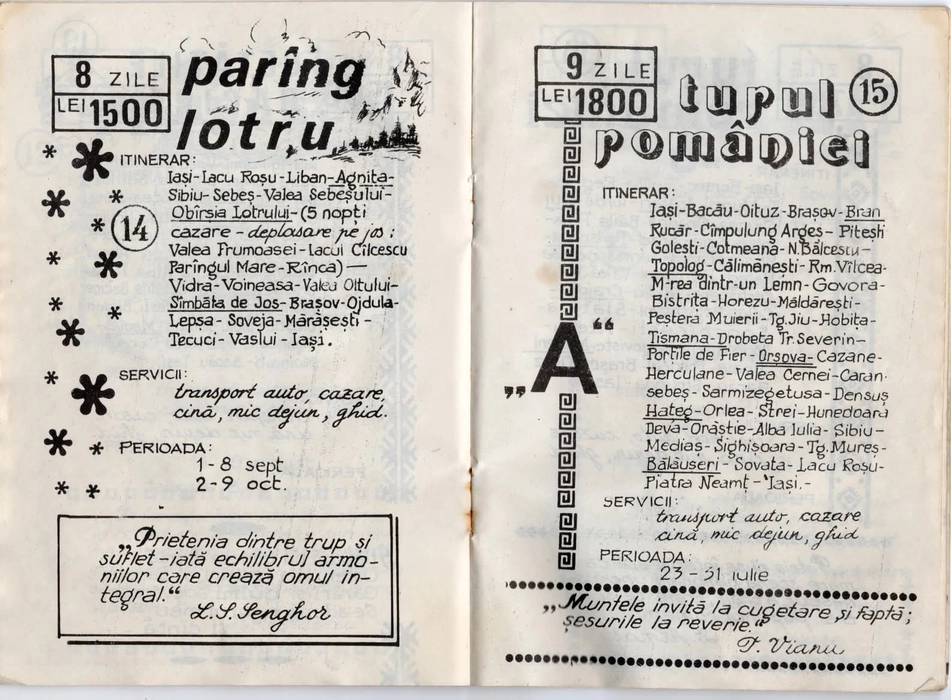 8 ZILE
LEI 1500
parîng
lotru
ITINERAR:
Iași-Lacu Roșu-Liban-Agnita-
Sibiu-Sebeș-Valea Sebeșului-
Obîrșia Lotrului-(5 nopți
14
cazare-deplasare pe jos:
Valea Frumoasei-Lacul Cîlcescu
Parîngul Mare-Rînca)—
Vidra-Voineasa-Valea Oltului-
Sîmbăta de Jos-Brașov-Ojdula-
Lepșa-Soveja-Mărășești-
Tecuci-Vaslui-Iași.
SERVICII:
transport auto, cazare,
cină, mic dejun, ghid.
PERIOADA:
1-8 sept
2-9 oct.
„Prietenia dintre trup și
suflet-iată echilibrul armo-
niilor care crează omul in-
tegral."
L.S. Senghor
9 ZILE
LEI 1800
turul
româniei
15
„A“
ITINERAR:
Iași-Bacău-Oituz-Brașov-Bran
Rucăr-Cîmpulung Argeș-Pitești
Golești-Cotmeana-N.Bălcescu-
Topolog-Călimănești-Rm.Vîlcea-
M-rea dintr-un Lemn-Govora-
Bistrița-Horezu-Măldărești-
Peștera Muierii-Tg.Jiu-Hobița-
Tismana-Drobeta Tr.Severin-
Porțile de Fier-Orșova-Cazane-
Herculane-Valea Cernei-Caran-
sebeș-Sarmizegetusa-Densuș
Hațeg-Orlea-Strei-Hunedoara
Deva-Orăștie-Alba Iulia-Sibiu-
Mediaș-Sighișoara-Tg.Mureș-
Bălăușeri-Sovata-Lacu Roșu-
Piatra Neamț-Iași.-
SERVICII:
transport auto, cazare
cină, mic dejun, ghid
PERIOADA:
23-31 iulie
„Muntele invită la cugetare și faptă;
șesurile la reverie."
T. Vianu